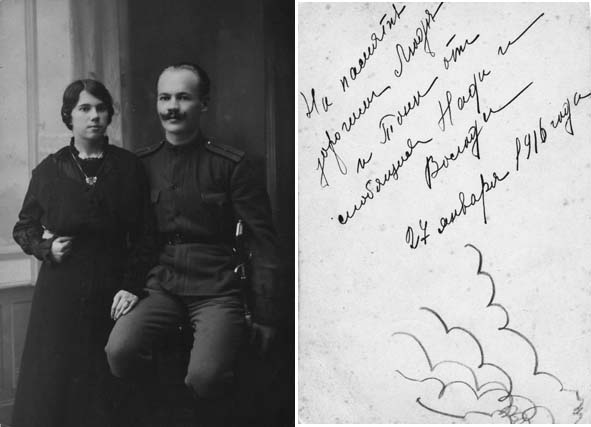 На память
дорогим Люде
и Тоне от
любящих Нади и
Володи
27 января 1916 года